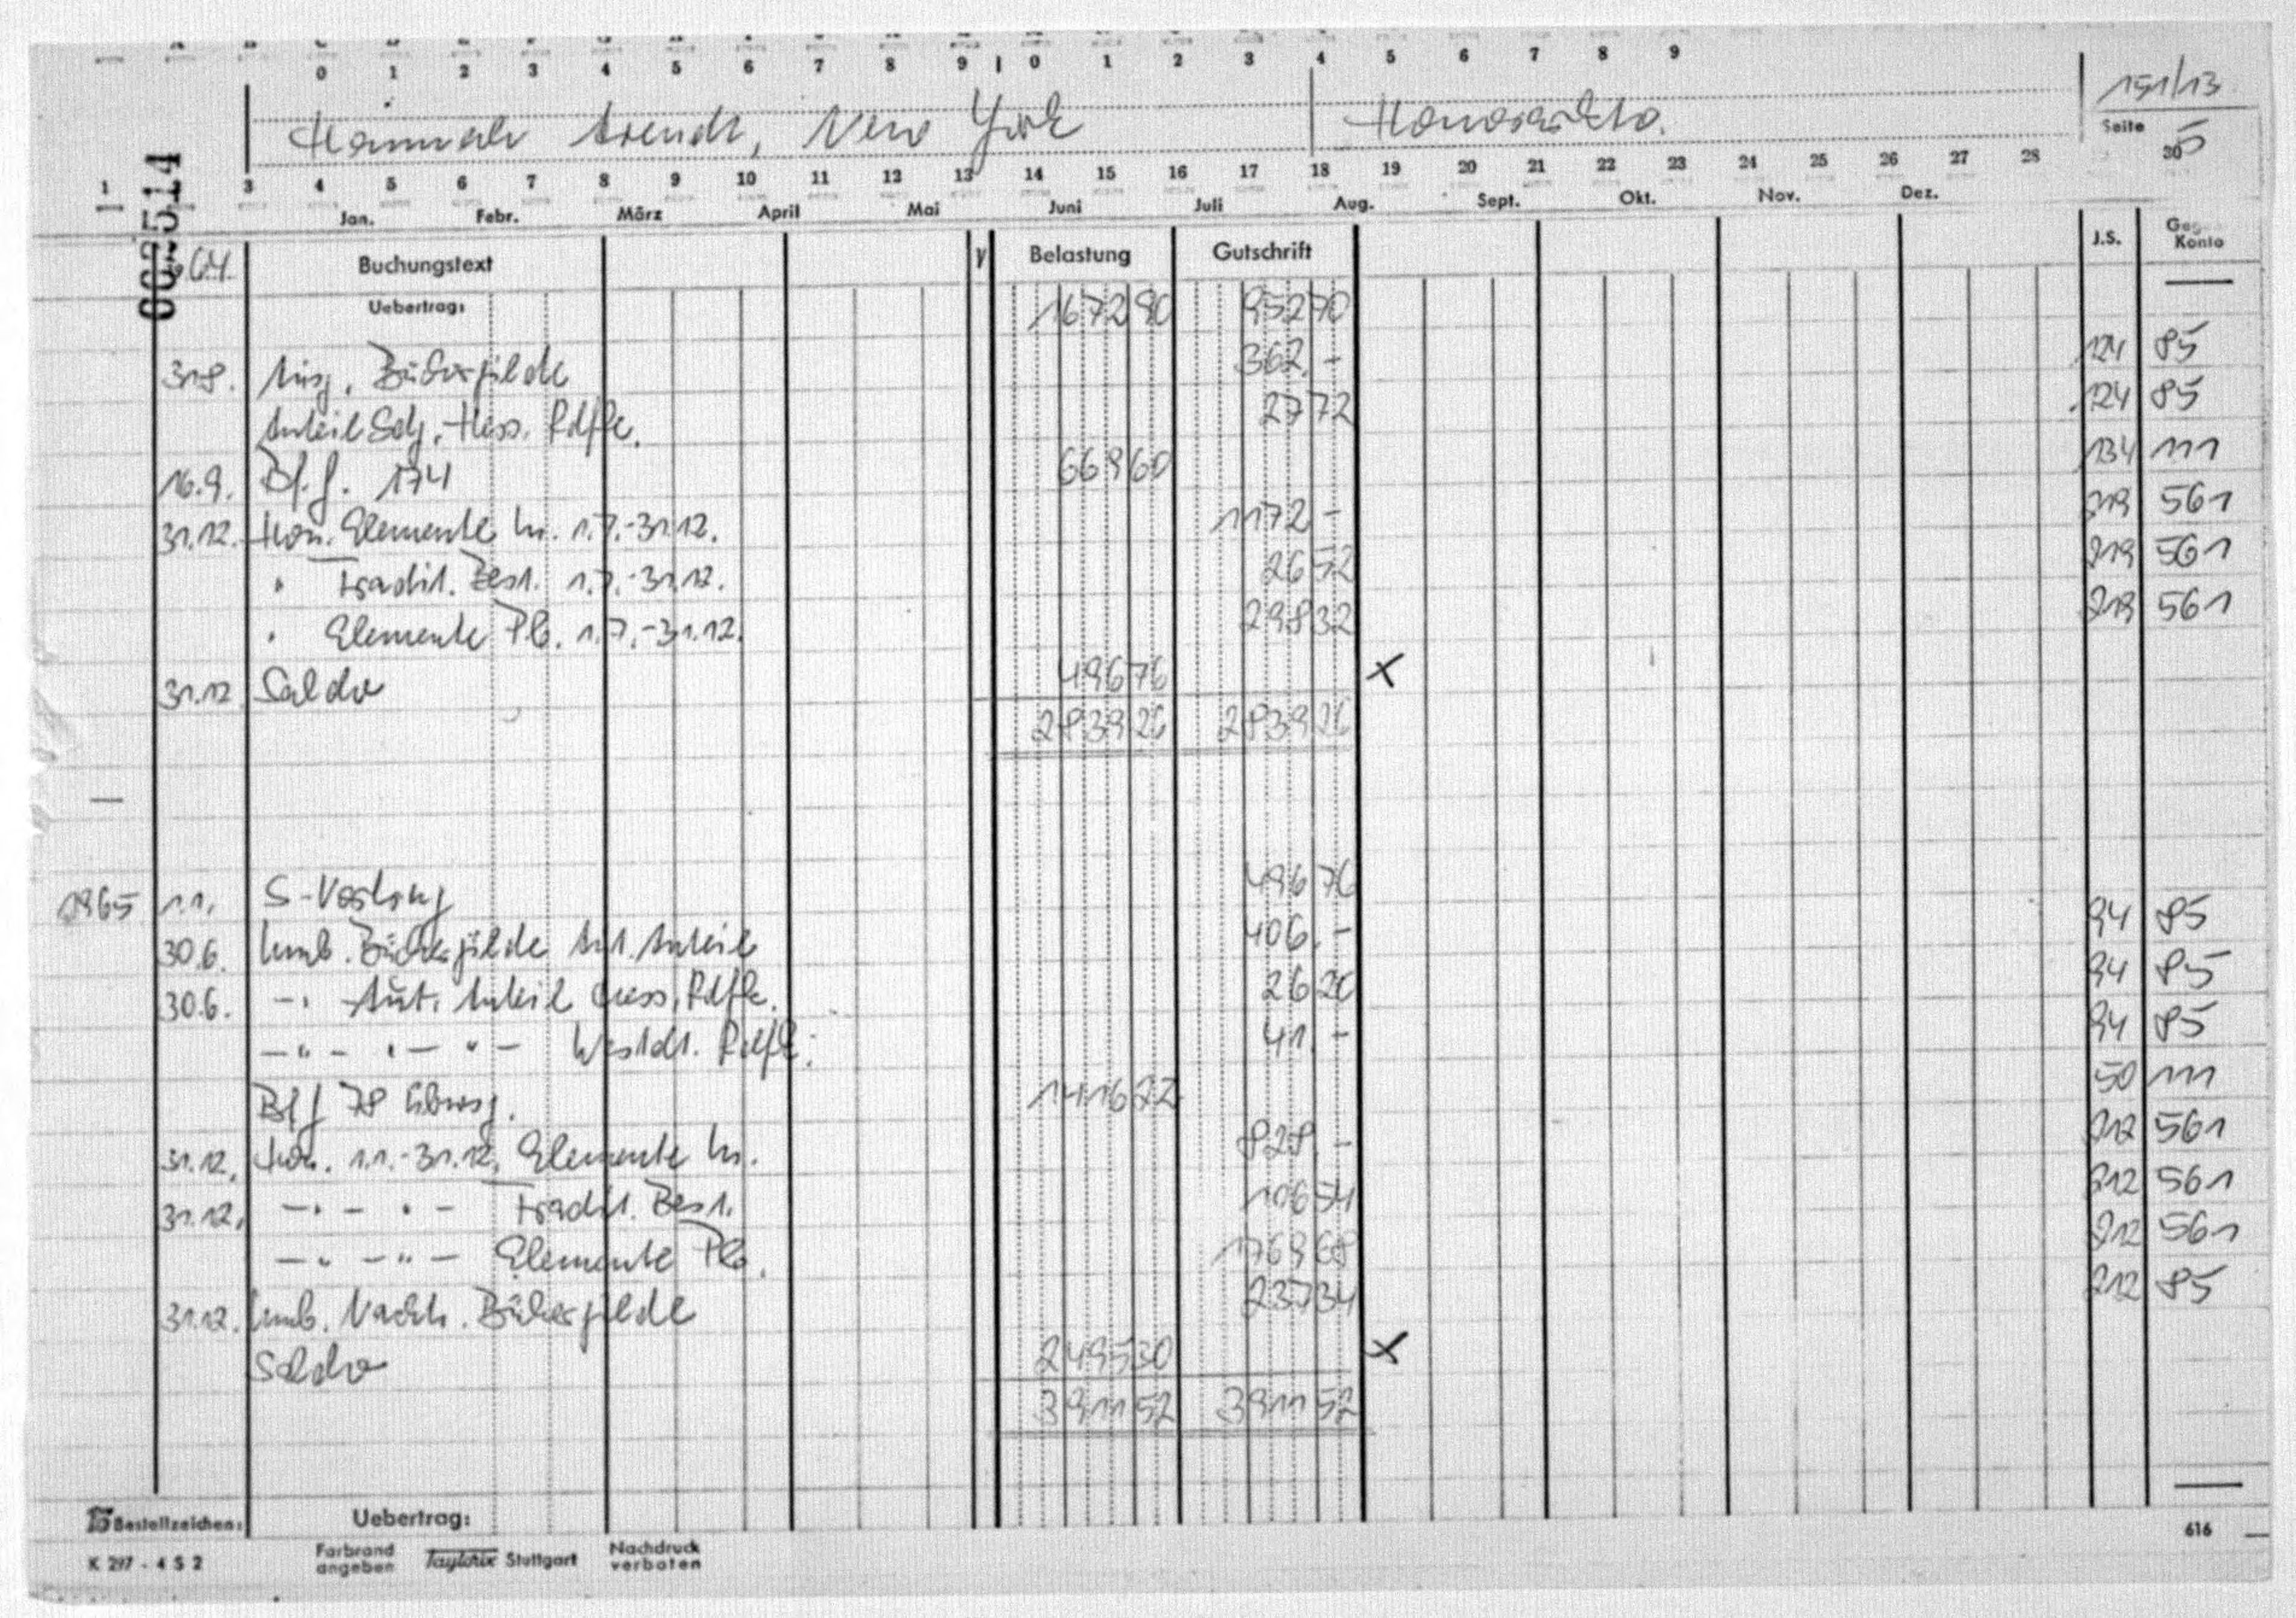 0 1 2 3 4 5 6 7 8 9 0 1 2 3 4 5 6 7 8 9
Hannah Arendt, New York Honorarkto. 151/13
Seite 5
1 3 4 5 6 7 8 9 10 11 12 13 14 15 16 17 18 19 20 21 22 23 24 25 26 27 28 30
Jan. Febr. März April Mai Juni Juli Aug. Sept. Okt. Nov. Dez.
002514
64. Buchungstext V Belastung Gutschrift J.S. Gegen Konto
Uebertrag: 1672 90 952 70
31.8. Büchergilde 362.- 124 85
Anteil Sdg. Hess. Rdfk. 27 72 124 85
16.9. Bl.f. 174 669 60 134 111
31.12. Hon. Elemente Ln. 1.7.-31.12. 1172 - 219 561
" Tradit. Best. 1.7.-31.12. 26 52 219 561
" Elemente Pb. 1.7.-31.12. 298 32 219 561
31.12 Saldo 496 76 x
2839 26 2839 26
1965 1.1. S-Vortrag 496 76
30.6. Umb. Büchergilde Aut. Anteil 406.- 94 85
30.6. -" Aut. Anteil Hess. Rdfk. 26 20 94 85
-"- "-"- Westdt. Rdfk. 41.- 94 85
Bl f 78 Überwsg. 1416 22 50 111
31.12. Hon. 1.1.-31.12. Elemente Ln. 828.- 212 561
31.12. -"- "- Tradit. Best. 106 54 212 561
-"-"- Elemente Pb. 1769 68 212 561
31.12. Umb. Nachh. Büchergilde 237 34 212 85
Saldo 2495 30 x
3911 52 3911 52
Bestellzeichen: Uebertrag: 616
K 297 - 4 S 2 Farbrand angeben Taylorix Stuttgart Nachdruck verboten